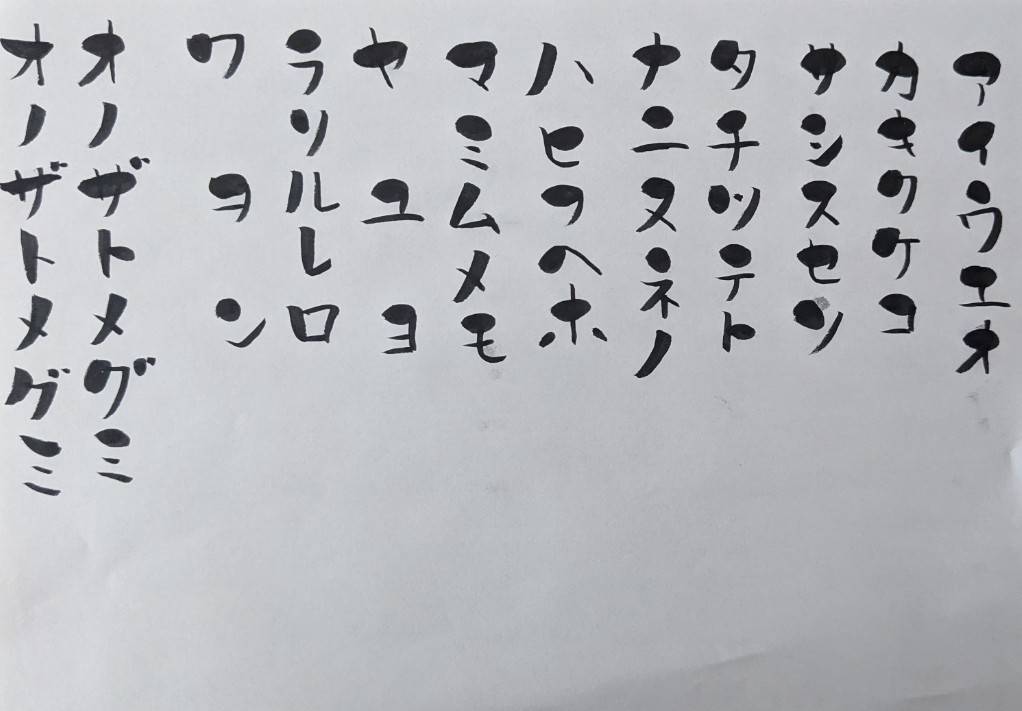 アイウエオ
カキクケコ
サシスセソ
タチツテト
ナニヌネノ
ハヒフヘホ
マミムメモ
ヤユヨ
ラリルレロ
ワヲン
オノザトメグミ
オノザトメグミ